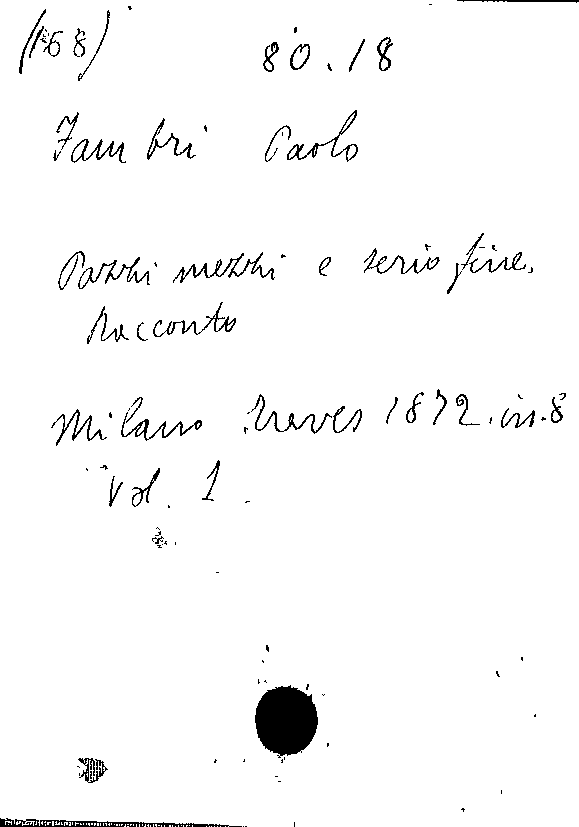 (168) 80.18
Fambri Paolo
Pazzhi mezzhi e serio fine.
Racconto
Milano Treves 1872.in.8
Vol. 1.